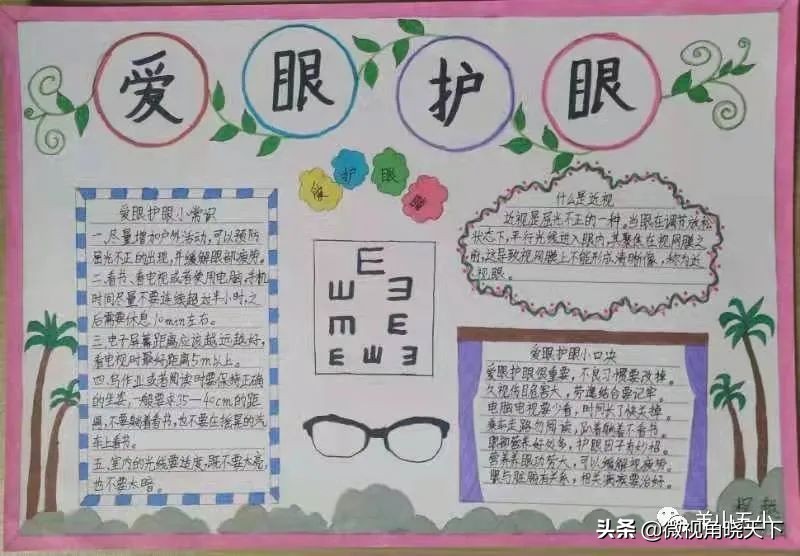 爱眼护眼
护眼
爱眼护眼小常识
一.尽量增加户外活动,可以预防
屈光不正的出现,并缓解眼部疲劳。
二.看书、看电视或者使用电脑,手机
时间尽量不要连续超过半小时,之
后需要休息10min左右。
三.电子屏幕距离应该越远越好,
看电视时最好距离5m以上。
四.写作业或者阅读时要保持正确
的坐姿,一般要求35—40cm的距
离,不要躺着看书,也不要在摇晃的汽
车上看书。
五.室内的光线要适度,既不要太亮,
也不要太暗。
E
E E
E E
E E E E
什么是近视
近视是屈光不正的一种。当眼在调节放松
状态下,平行光线进入眼内,其聚焦在视网膜之
前,这导致视网膜上不能形成清晰像,称为近
视眼。
爱眼护眼小口诀
爱眼护眼很重要,不良习惯要改掉。
久视伤目危害大,劳逸结合要记牢。
电脑电视要少看,时间长了快关掉。
乘车走路勿阅读,趴着躺着不看书。
营养养眼功劳大,可以缓解视疲劳。
眼与脏腑有关系,相关疾病要治好。
羊山五小
头条 @微视角晓天下